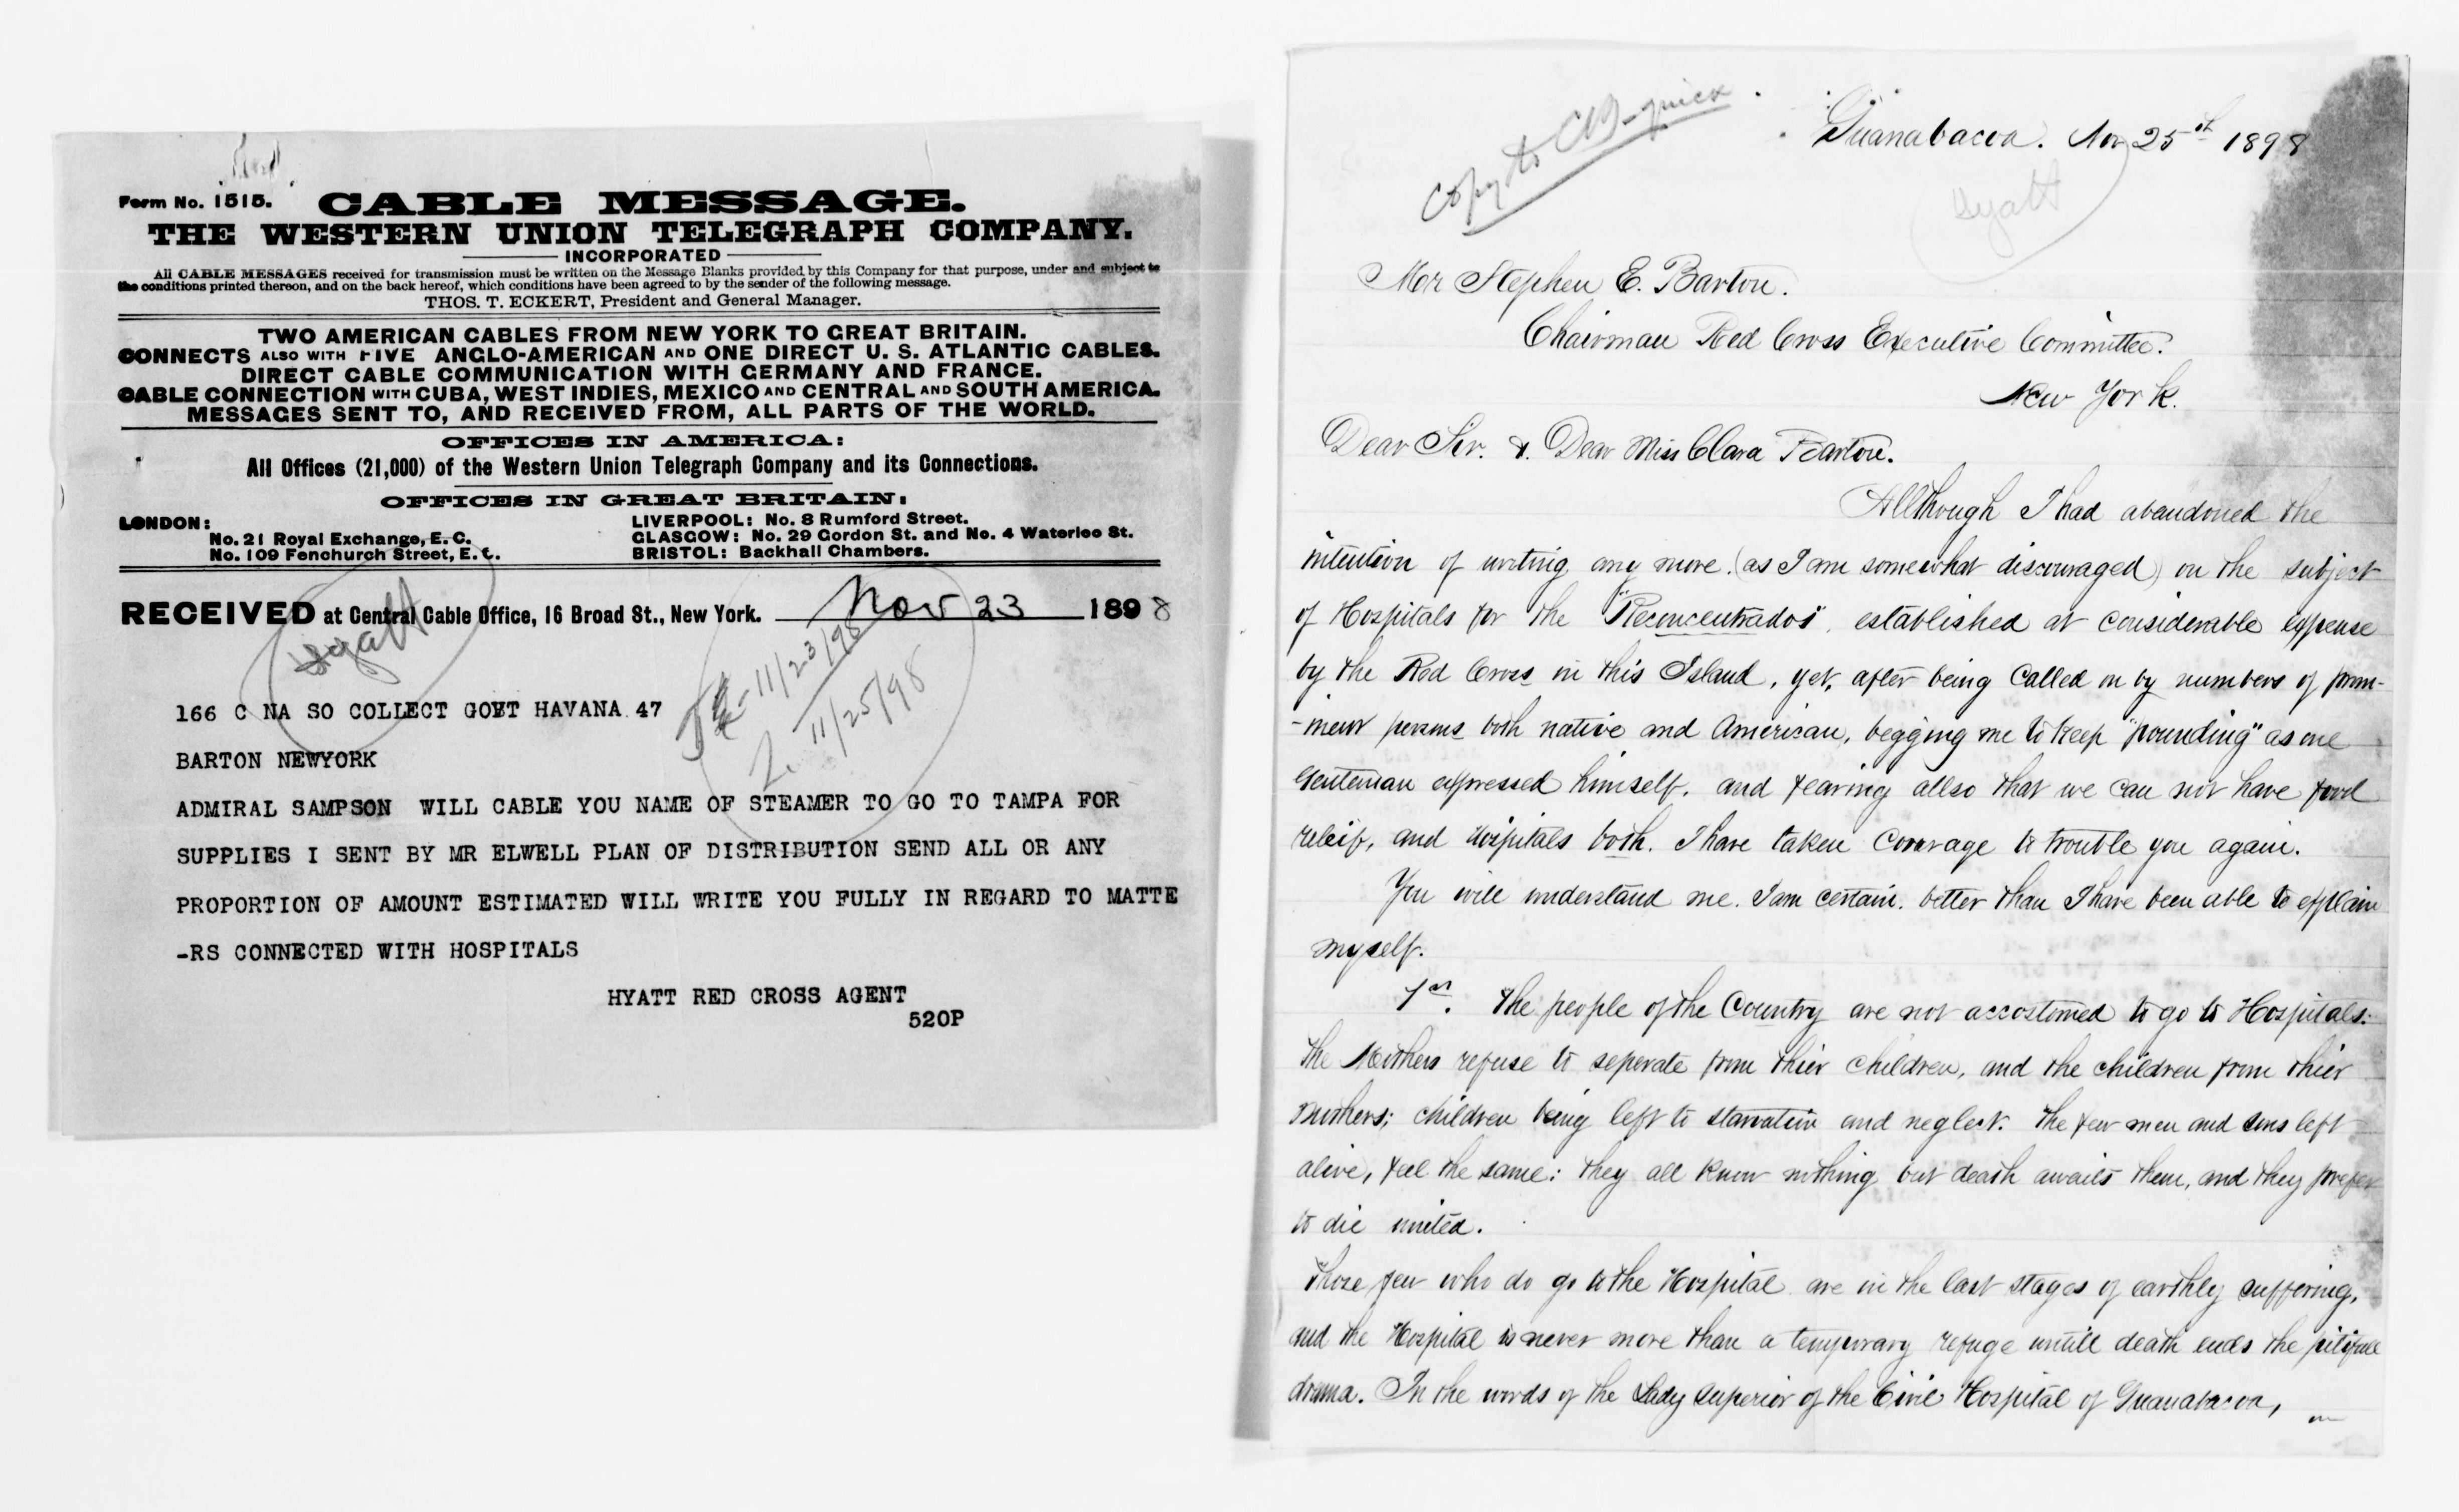 Form No. 1515. CABLE MESSAGE.
THE WESTERN UNION TELEGRAPH COMPANY.
INCORPORATED
All CABLE MESSAGES received for transmission must be written on the Message Blanks provided by this Company for that purpose, under and subject to
the conditions printed thereon, and on the back hereof, which conditions have been agreed to by the sender of the following message.
THOS. T. ECKERT, President and General Manager.
TWO AMERICAN CABLES FROM NEW YORK TO GREAT BRITAIN.
CONNECTS ALSO WITH FIVE ANGLO-AMERICAN AND ONE DIRECT U. S. ATLANTIC CABLES.
DIRECT CABLE COMMUNICATION WITH GERMANY AND FRANCE.
CABLE CONNECTION WITH CUBA, WEST INDIES, MEXICO AND CENTRAL AND SOUTH AMERICA.
MESSAGES SENT TO, AND RECEIVED FROM, ALL PARTS OF THE WORLD.
OFFICES IN AMERICA:
All Offices (21,000) of the Western Union Telegraph Company and its Connections.
OFFICES IN GREAT BRITAIN:
LONDON:
No. 21 Royal Exchange, E. C.
No. 109 Fenchurch Street, E. C.
LIVERPOOL: No. 8 Rumford Street.
GLASGOW: No. 29 Gordon St. and No. 4 Waterloo St.
BRISTOL: Backhall Chambers.
RECEIVED at Central Cable Office, 16 Broad St., New York. Nov 23 1898
Hyatt
11/23/98
11/25/98
166 C NA SO COLLECT GOVT HAVANA 47
BARTON NEWYORK
ADMIRAL SAMPSON WILL CABLE YOU NAME OF STEAMER TO GO TO TAMPA FOR
SUPPLIES I SENT BY MR ELWELL PLAN OF DISTRIBUTION SEND ALL OR ANY
PROPORTION OF AMOUNT ESTIMATED WILL WRITE YOU FULLY IN REGARD TO MATTE
-RS CONNECTED WITH HOSPITALS
HYATT RED CROSS AGENT
520P
Copy to CB-quick
Guanabacoa. Nov 25th 1898
Hyatt
Mr Stephen E. Barton.
Chairman Red Cross Executive Committee.
New York.
Dear Sir. & Dear Miss Clara Barton.
Allthough I had abandoned the
intention of writing any more (as I am somewhat discouraged) on the subject
of Hospitals for the "Reconcentrados", established at considerable expense
by the Red Cross in this Island, yet, after being called on by numbers of prom-
-inent persons both native and American, begging me to keep "pounding" as one
Genteman expressed himself. and fearing allso that we can not have food
releif, and Hospitals both. I have taken courage to trouble you again.
You will understand me. I am certain. better than I have been able to explain
myself.
1st. The people of the Country are not accostomed to go to Hospitals:
the Mothers refuse to seperate from thier children, and the children from thier
Mothers; children being left to starvation and neglect. The few men and sons left
alive, feel the same: they all know nothing but death awaits them, and they prefer
to die united.
Those few who do go to the Hospital are in the last stages of earthly suffering,
and the Hospital is never more than a temporary refuge untill death ends the pitifull
drama. In the words of the Lady Superior of the Civil Hospital of Guanabacoa,